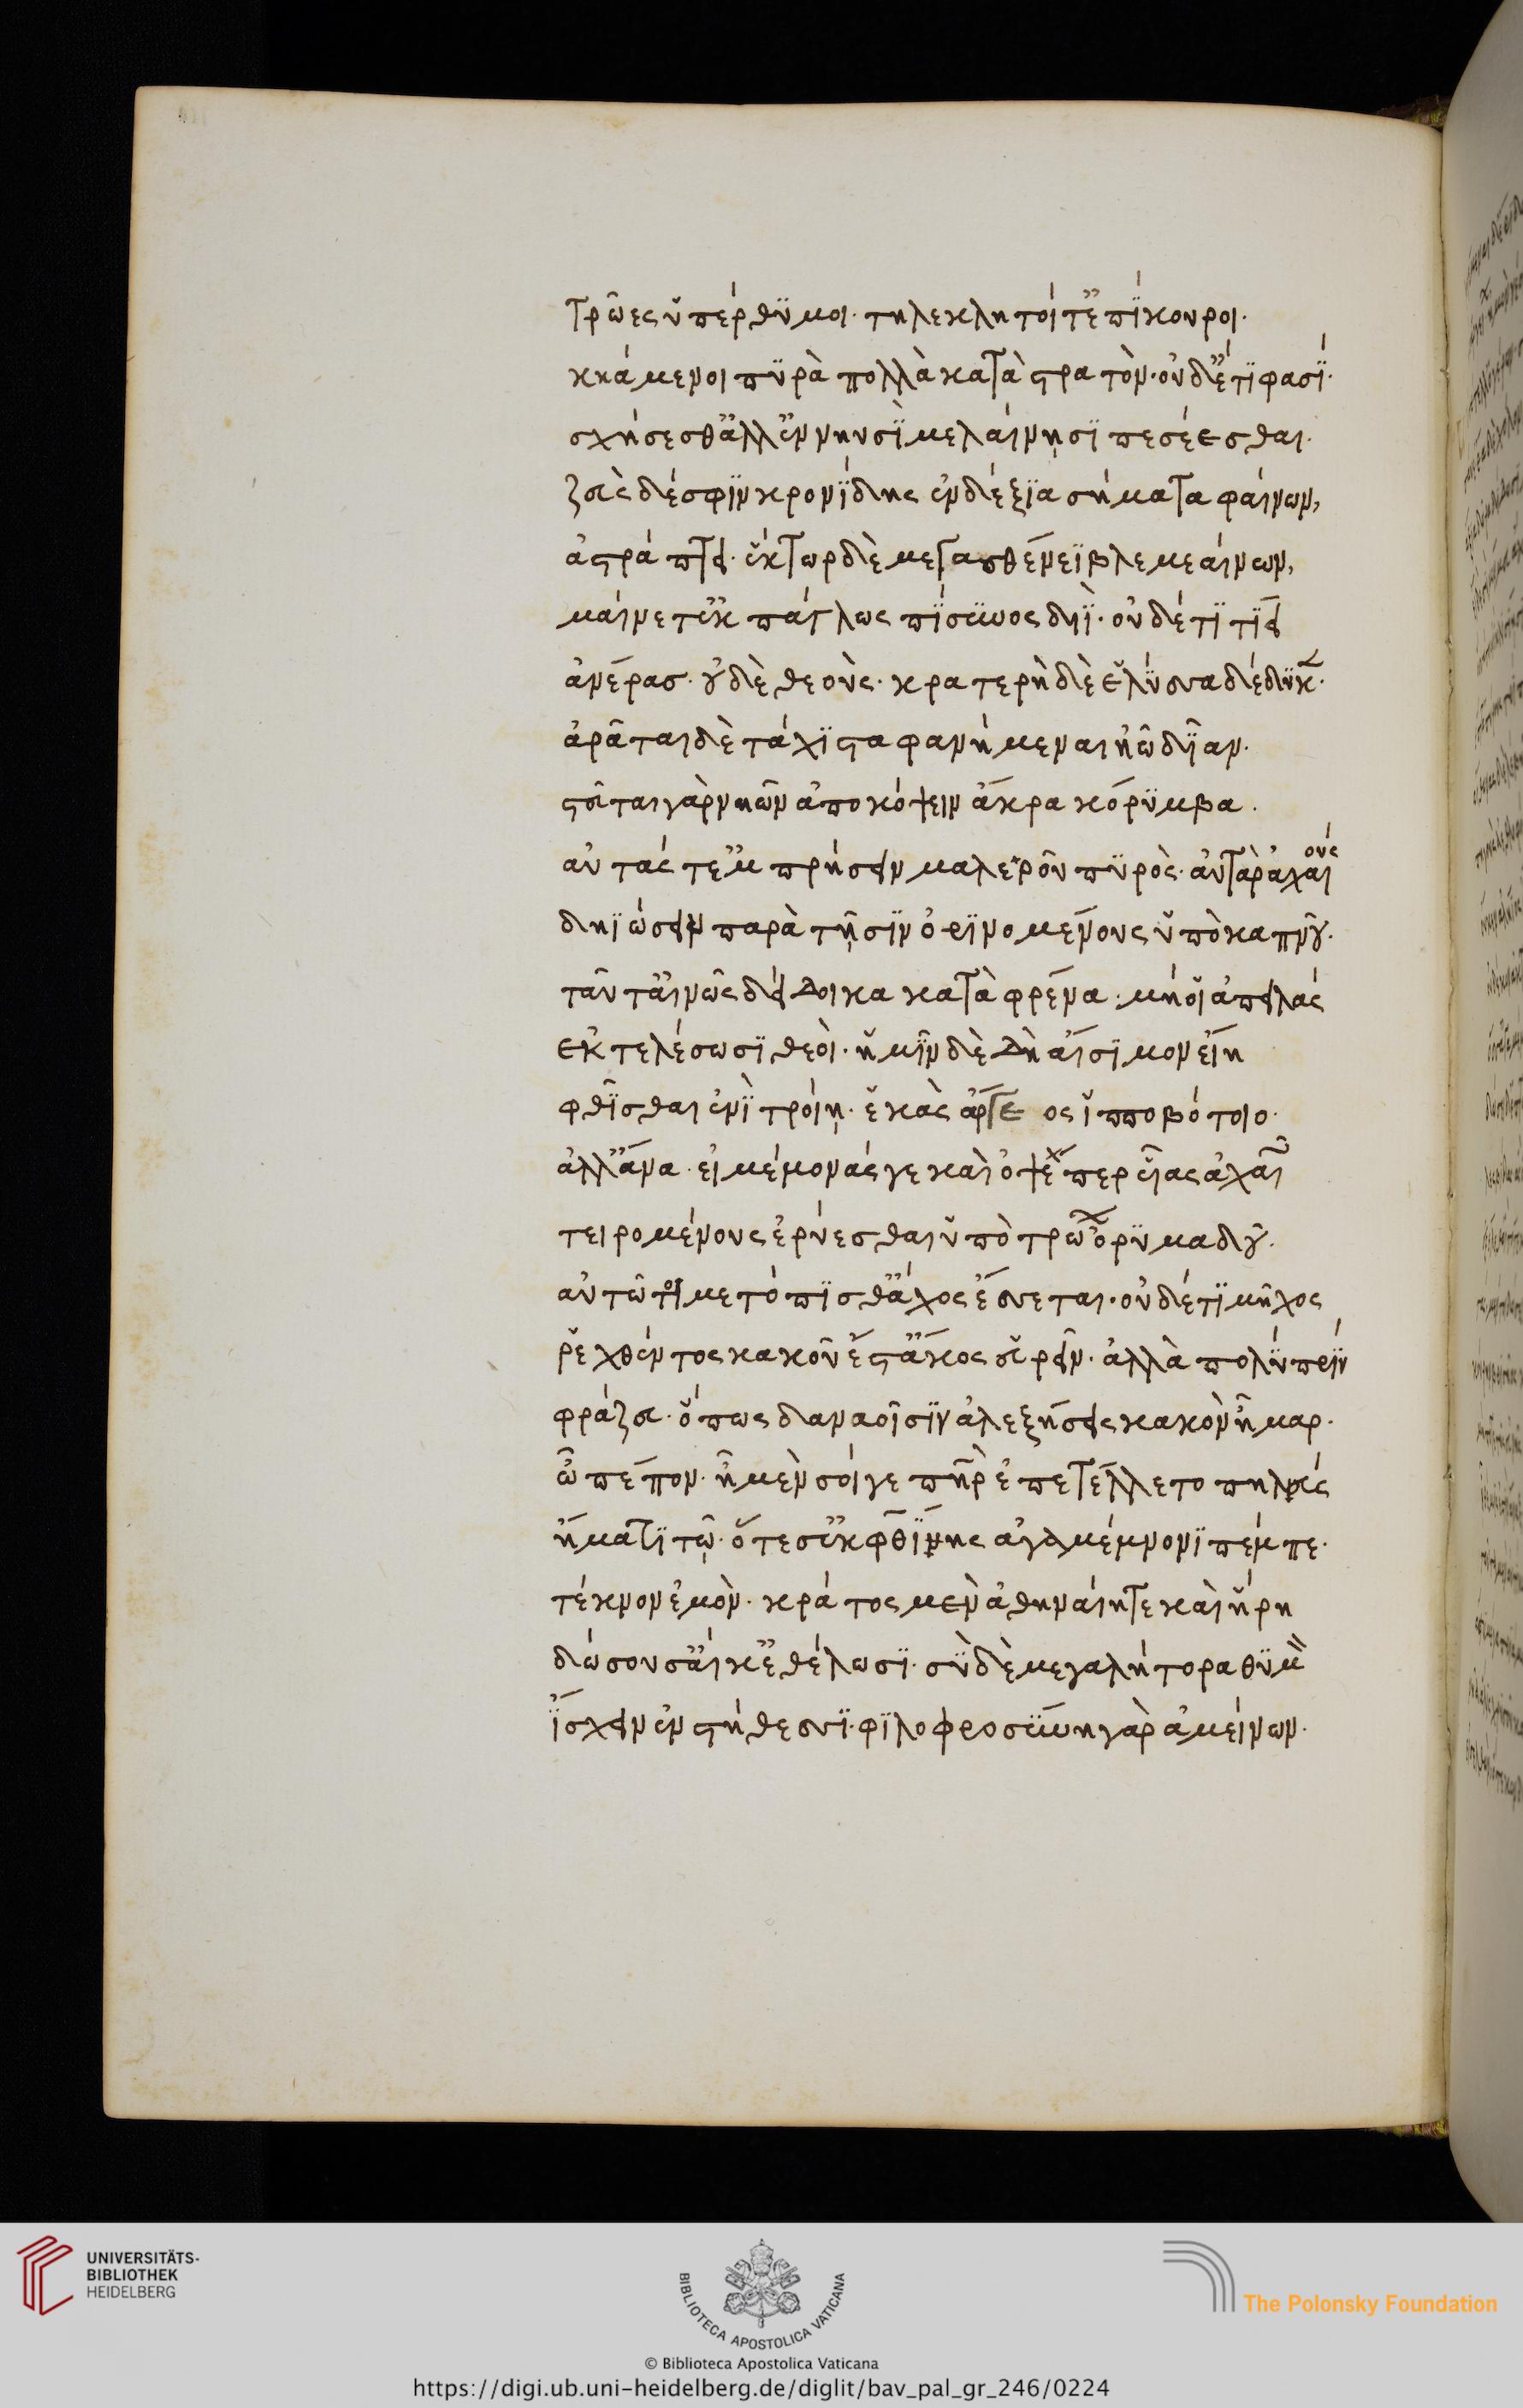 Τρῶες ὑπέρθυμοι· τηλεκλητοί τ' ἐπίκουροι·
κηάμενοι πυρὰ πολλὰ κατὰ στρατὸν· οὐδ' ἔτι φασί·
σχήσεσθ' ἀλλ' ἐν νηυσὶ μελαίνῃσι πεσέεσθαι·
ζεὺς δέ σφιν κρονίδης ἐνδέξια σήματα φαίνων,
ἀστράπτει· ἕκτωρ δὲ μέγα σθένεϊ βλεμεαίνων,
μαίνετ' ἐκπάγλως πίσυνος διῒ· οὐδέ τι τίει
ἀνέρας· οὐδὲ θεοὺς· κρατερὴ δὲ ἑ λύσσα δέδυκεν·
ἀρᾶται δὲ τάχιστα φανήμεναι ἠῶ δῖαν·
στεῦται γὰρ νηῶν ἀποκόψειν ἄκρα κόρυμβα·
αὐτάς τ' ἐμπρήσειν μαλεροῦ πυρὸς· αὐτὰρ ἀχαιούς
δηϊώσειν παρὰ τῇσιν ὀρινομένους ὑπὸ καπνοῦ·
ταῦτ' αἰνῶς δείδοικα κατὰ φρένα· μή οἱ ἀπειλάς
ἐκτελέσωσι θεοὶ· ἡμῖν δὲ δὴ αἴσιμον εἴη
φθῖσθαι ἐνὶ τροίῃ· ἑκὰς ἄργε ος ἱπποβότοιο·
ἀλλ' ἄνα· εἰ μέμονάς γε καὶ ὀψέ περ υἷας ἀχαιῶν
τειρομένους ἐρύεσθαι ὑπὸ τρώων ὀρυμαδοῦ·
αὐτῶ τοι μετόπισθ' ἄχος ἔσσεται· οὐδέ τι μῆχος
ῥεχθέντος κακοῦ ἔστ' ἄκος εὑρεῖν· ἀλλὰ πολὺ πρίν
φράζευ· ὅπως δαναοῖσιν ἀλεξήσεις κακὸν ἦμαρ·
ὦ πέπον· ἦ μὲν σοί γε πατὴρ ἐπετέλλετο πηλεύς
ἤματι τῷ· ὅτε σ' ἐκ φθίης ἀγαμέμνονι πέμπε·
τέκνον ἐμὸν· κράτος μὲν ἀθηναίη τε καὶ ἥρη
δώσουσ' αἴ κ' ἐθέλωσι· σὺ δὲ μεγαλήτορα θυμὸν
ἴσχειν ἐν στήθεσσι· φιλοφροσύνη γὰρ ἀμείνων·
UNIVERSITÄTS-
BIBLIOTHEK
HEIDELBERG
BIBLIOTECA APOSTOLICA VATICANA
The Polonsky Foundation
© Biblioteca Apostolica Vaticana
https://digi.ub.uni-heidelberg.de/diglit/bav_pal_gr_246/0224